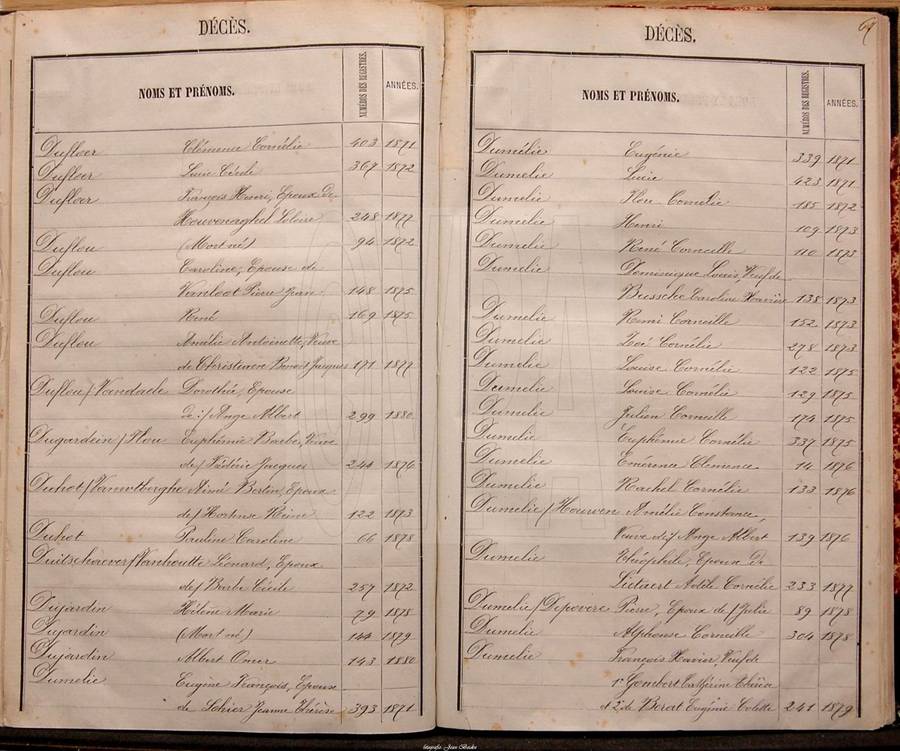 DÉCÈS.
NOMS ET PRÉNOMS. NUMÉROS DES REGISTRES. ANNÉES.
Dufloer Clémence Cornélie 403 1871
Dufloer Lucie Cécile 367 1872
Dufloer François Henri, Epoux de
Houvenaghel Silvie 248 1877
Duflou (Mort né) 94 1872
Duflou Caroline, Epouse de
Vanloot Pierre Jean 148 1875
Duflou René 169 1875
Duflou Amélie Antoinette, Veuve
de Christiaen Benoit Jacques 171 1877
Duflou / Vaendaele Dorothée, Epouse
de / Ange Albert 299 1880
Dugardein / Flou Euphémie Barbe, Veuve
de / Frédéric Jacques 244 1876
Duhot / Vanwtberghe Aimé Bertin, Epoux
de / Hortense Reine 122 1873
Duhot Pauline Caroline 66 1878
Duitschaever / Vanhoutte Léonard, Epoux
de / Barbe Cécile 257 1872
Dujardin Hélène Marie 79 1878
Dujardin (Mort né) 144 1879
Dujardin Albert Omer 143 1880
Dumelie Eugène François, Epoux
de Sohier Jeanne Thérèse 393 1871
DÉCÈS. 69
NOMS ET PRÉNOMS. NUMÉROS DES REGISTRES. ANNÉES.
Dumélie Eugénie 339 1871
Dumelie Lucie 423 1871
Dumelie Flou Cornelie 185 1872
Dumelie Henri 109 1873
Dumelie René Corneille 110 1873
Dumelie Dominique Louis, Veuf de
Bussche Caroline Xavière 138 1873
Dumelie Remi Corneille 152 1873
Dumelie Zoé Cornélie 278 1873
Dumelie Louise Cornélie 122 1875
Dumelie Louise Cornélie 129 1875
Dumelie Julien Corneille 174 1875
Dumelie Euphémie Cornélie 337 1875
Dumelie Emérence Clemence 14 1876
Dumelie Rachel Cornélie 133 1876
Dumelie / Hourven Amélie Constance,
Veuve de / Ange Albert 139 1876
Dumelie Théophile, Epoux de
Lietaert Adèle Cornélie 233 1877
Dumelie / Depovere Pierre, Epoux de / Julie 89 1878
Dumelie Alphonse Corneille 304 1878
Dumelie François Xavier Veuf de
1° Gombert Cathérine Thérèse
& 2° de Berat Eugénie Colette 241 1879
fotografie Jean Beckx